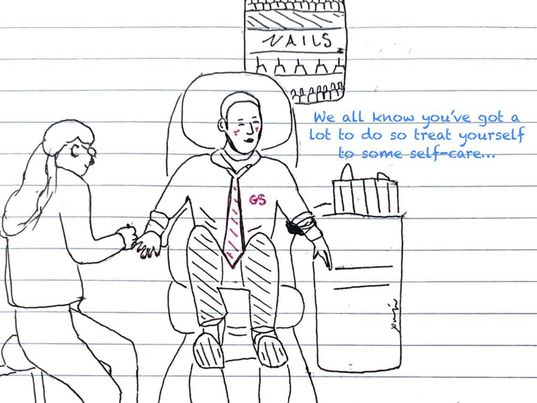 NAILS
We all know you've got a
lot to do so treat yourself
to some self-care...
GS